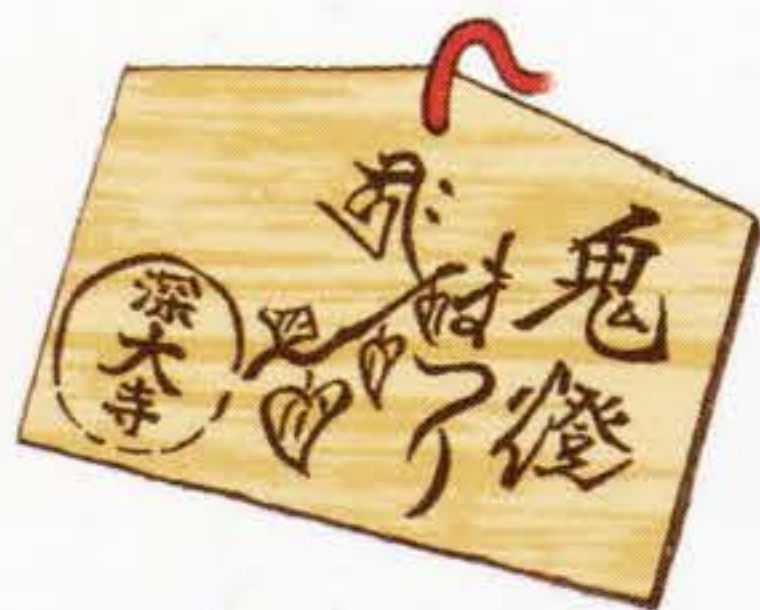 鬼燈
まつり
深大寺